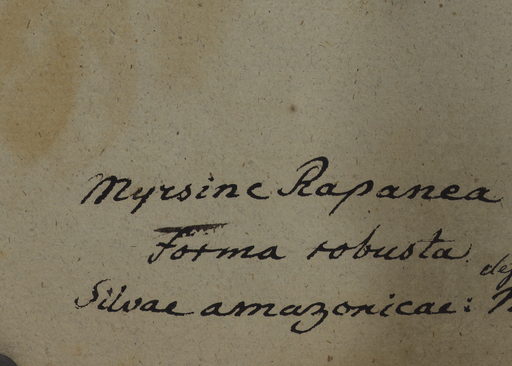 Myrsine Rapanea
Forma robusta
Silvae amazonicae: